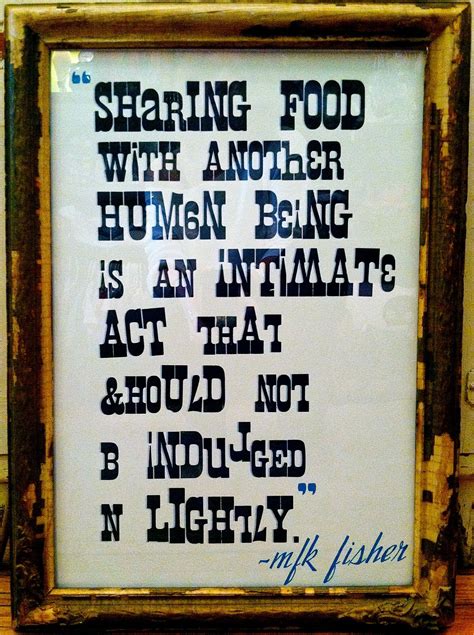 “SHaRING FOOD
WiTH ANOThER
HUM6N BEiNG
iS AN iNTiMATE
ACT THAT
&HOULD NOT
B iNDULGED
N LIGHTLY.”
~mfk fisher